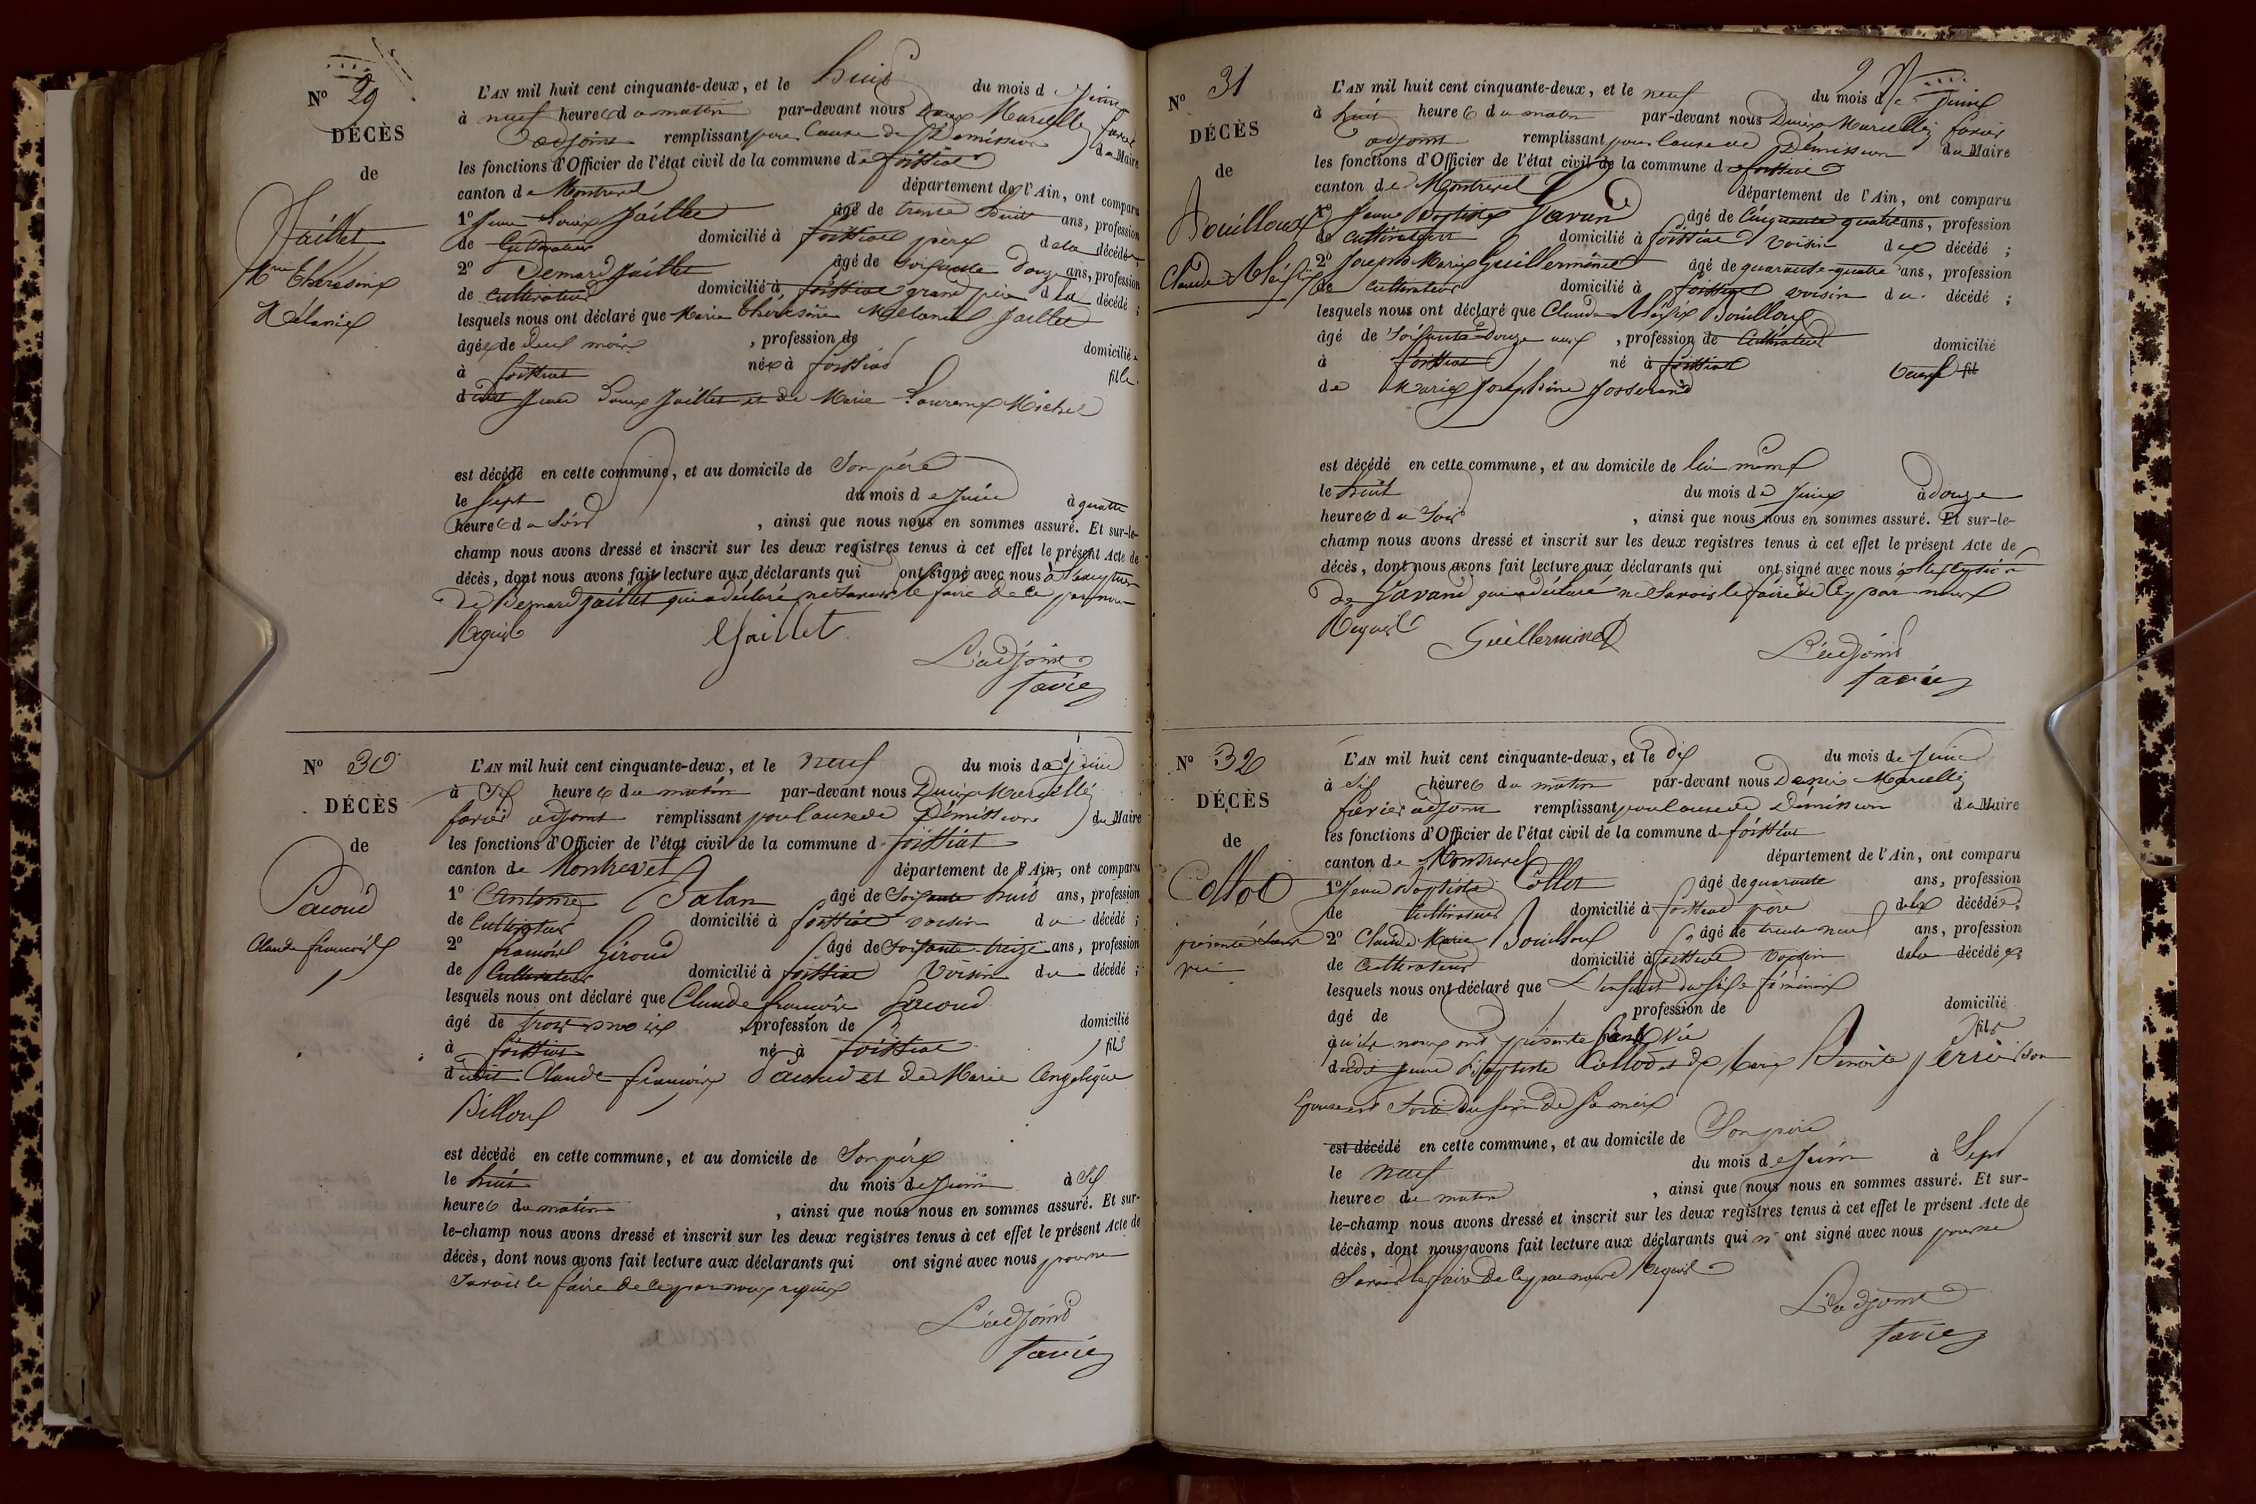 N° 29
DÉCÈS
de
Jaillet
Mrie Theresine
Mélanie
L'AN mil huit cent cinquante-deux, et le huit du mois de Juin
à neuf heures du matin par-devant nous Marcelley favier
adjoint remplissant pour Cause de Démission du Maire
les fonctions d'Officier de l'état civil de la commune de foissiat
canton de Montrevel département de l'Ain, ont comparu
1° Jean Louis Jaillet âgé de trente huit ans, profession
de Cultivateur domicilié à foissiat père de la décédée ;
2° Bernard Jaillet âgé de soixante douze ans, profession
de cultivateur domicilié à foissiat grand père de la décédé ;
lesquels nous ont déclaré que Marie Thérésine Mélanie Jaillet
âgée de deux mois , profession de domicilié
à foissiat née à foissiat fille
dudit Jean Louis Jaillet et de Marie Laurence Michel
est décédé en cette commune, et au domicile de Son père
le Sept du mois de Juin à quatre
heures du Soir , ainsi que nous nous en sommes assuré. Et sur-le-
champ nous avons dressé et inscrit sur les deux registres tenus à cet effet le présent Acte de
décès, dont nous avons fait lecture aux déclarants qui ont signé avec nous à l'exception
de Bernard Jaillet qui a déclaré ne Savoir le faire de ce par nous
Requis Jaillet
L'adjoint
favier
N° 30
DÉCÈS
de
Pacoud
Claude françois
L'AN mil huit cent cinquante-deux, et le neuf du mois de juin
à Six heures du matin par-devant nous Marcelley
favier adjoint remplissant pour cause de Démission du Maire
les fonctions d'Officier de l'état civil de la commune de foissiat
canton de Montrevel département de l'Ain, ont comparu
1° Antoine Balan âgé de Soixante huit ans, profession
de Cultivateur domicilié à foissiat voisin du décédé ;
2° françois Giroud âgé de Soixante treize ans, profession
de Cultivateur domicilié à foissiat Voisin du décédé ;
lesquels nous ont déclaré que Claude françois Pacoud
âgé de trois mois , profession de domicilié
à foissiat né à foissiat fils
dudit Claude françois Pacoud et de Marie Angelique
Billoux
est décédé en cette commune, et au domicile de Son père
le huit du mois de Juin à Six
heures du matin , ainsi que nous nous en sommes assuré. Et sur-
le-champ nous avons dressé et inscrit sur les deux registres tenus à cet effet le présent Acte de
décès, dont nous avons fait lecture aux déclarants qui ont signé avec nous pour ne
Savoir le faire de ce par nous requis
L'adjoint
favier
N° 31
DÉCÈS
de
Bouilloux
Claude Aléxis
L'AN mil huit cent cinquante-deux, et le neuf du mois de Juin
à huit heures du matin par-devant nous Marcelley favier
adjoint remplissant pour cause de Démission du Maire
les fonctions d'Officier de l'état civil de la commune de foissiat
canton de Montrevel département de l'Ain, ont comparu
1° Jean Baptiste Gavand âgé de Cinquante quatre ans, profession
de cultivateur domicilié à foissiat Voisin du décédé ;
2° Joseph Marie Guillerminet âgé de quarante-quatre ans, profession
de Cultivateur domicilié à foissiat voisin du décédé ;
lesquels nous ont déclaré que Claude Aléxis Bouilloux
âgé de Soixante-Douze ans , profession de Cultivateur domicilié
à foissiat né à foissiat veuf fil
de Marie Joséphine Josserand
est décédé en cette commune, et au domicile de lui même
le huit du mois de Juin à douze
heures du Soir , ainsi que nous nous en sommes assuré. Et sur-le-
champ nous avons dressé et inscrit sur les deux registres tenus à cet effet le présent Acte de
décès, dont nous avons fait lecture aux déclarants qui ont signé avec nous à l'exception
de Gavand qui a déclaré ne Savoir le faire de ce par nous
Requis Guillerminet
L'adjoint
favier
N° 32
DÉCÈS
de
Collot
présenté Sans
vie
L'AN mil huit cent cinquante-deux, et le dix du mois de Juin
à Six heures du matin par-devant nous Denis Marcelley
favier adjoint remplissant pour cause de Démission du Maire
les fonctions d'Officier de l'état civil de la commune de foissiat
canton de Montrevel département de l'Ain, ont comparu
1° Jean Baptiste Collot âgé de quarante ans, profession
de Cultivateur domicilié à foissiat père de la décédée ;
2° Claude Marie Bouilloux âgé de trente neuf ans, profession
de Cultivateur domicilié à foissiat voisin de la décédée
lesquels nous ont déclaré que L'enfant du Sexe féminin
âgé de profession de domicilié
qu'ils nous ont présenté Sans Vie fils
dudit Jean Baptiste Collot et de Marie Benoite son
Epouse est Sorti du Sein de Sa mère
est décédé en cette commune, et au domicile de Son père
le neuf du mois de Juin à Sept
heures du matin , ainsi que nous nous en sommes assuré. Et sur-
le-champ nous avons dressé et inscrit sur les deux registres tenus à cet effet le présent Acte de
décès, dont nous avons fait lecture aux déclarants qui n'ont signé avec nous pour ne
Savoir le faire de ce par nous Requis
L'adjoint
favier